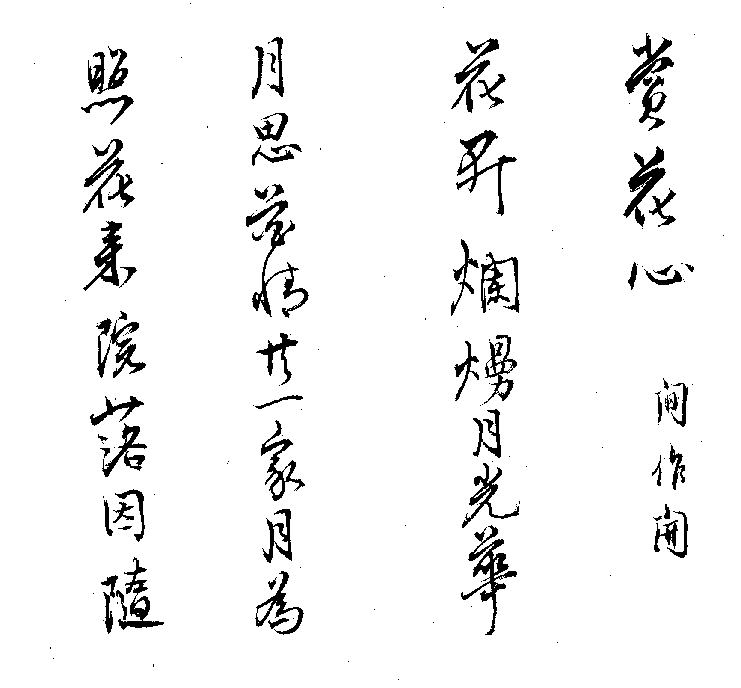 賞花心 間作開
花开爛熳月光華
月思花情共一家月為
照花来院落因隨